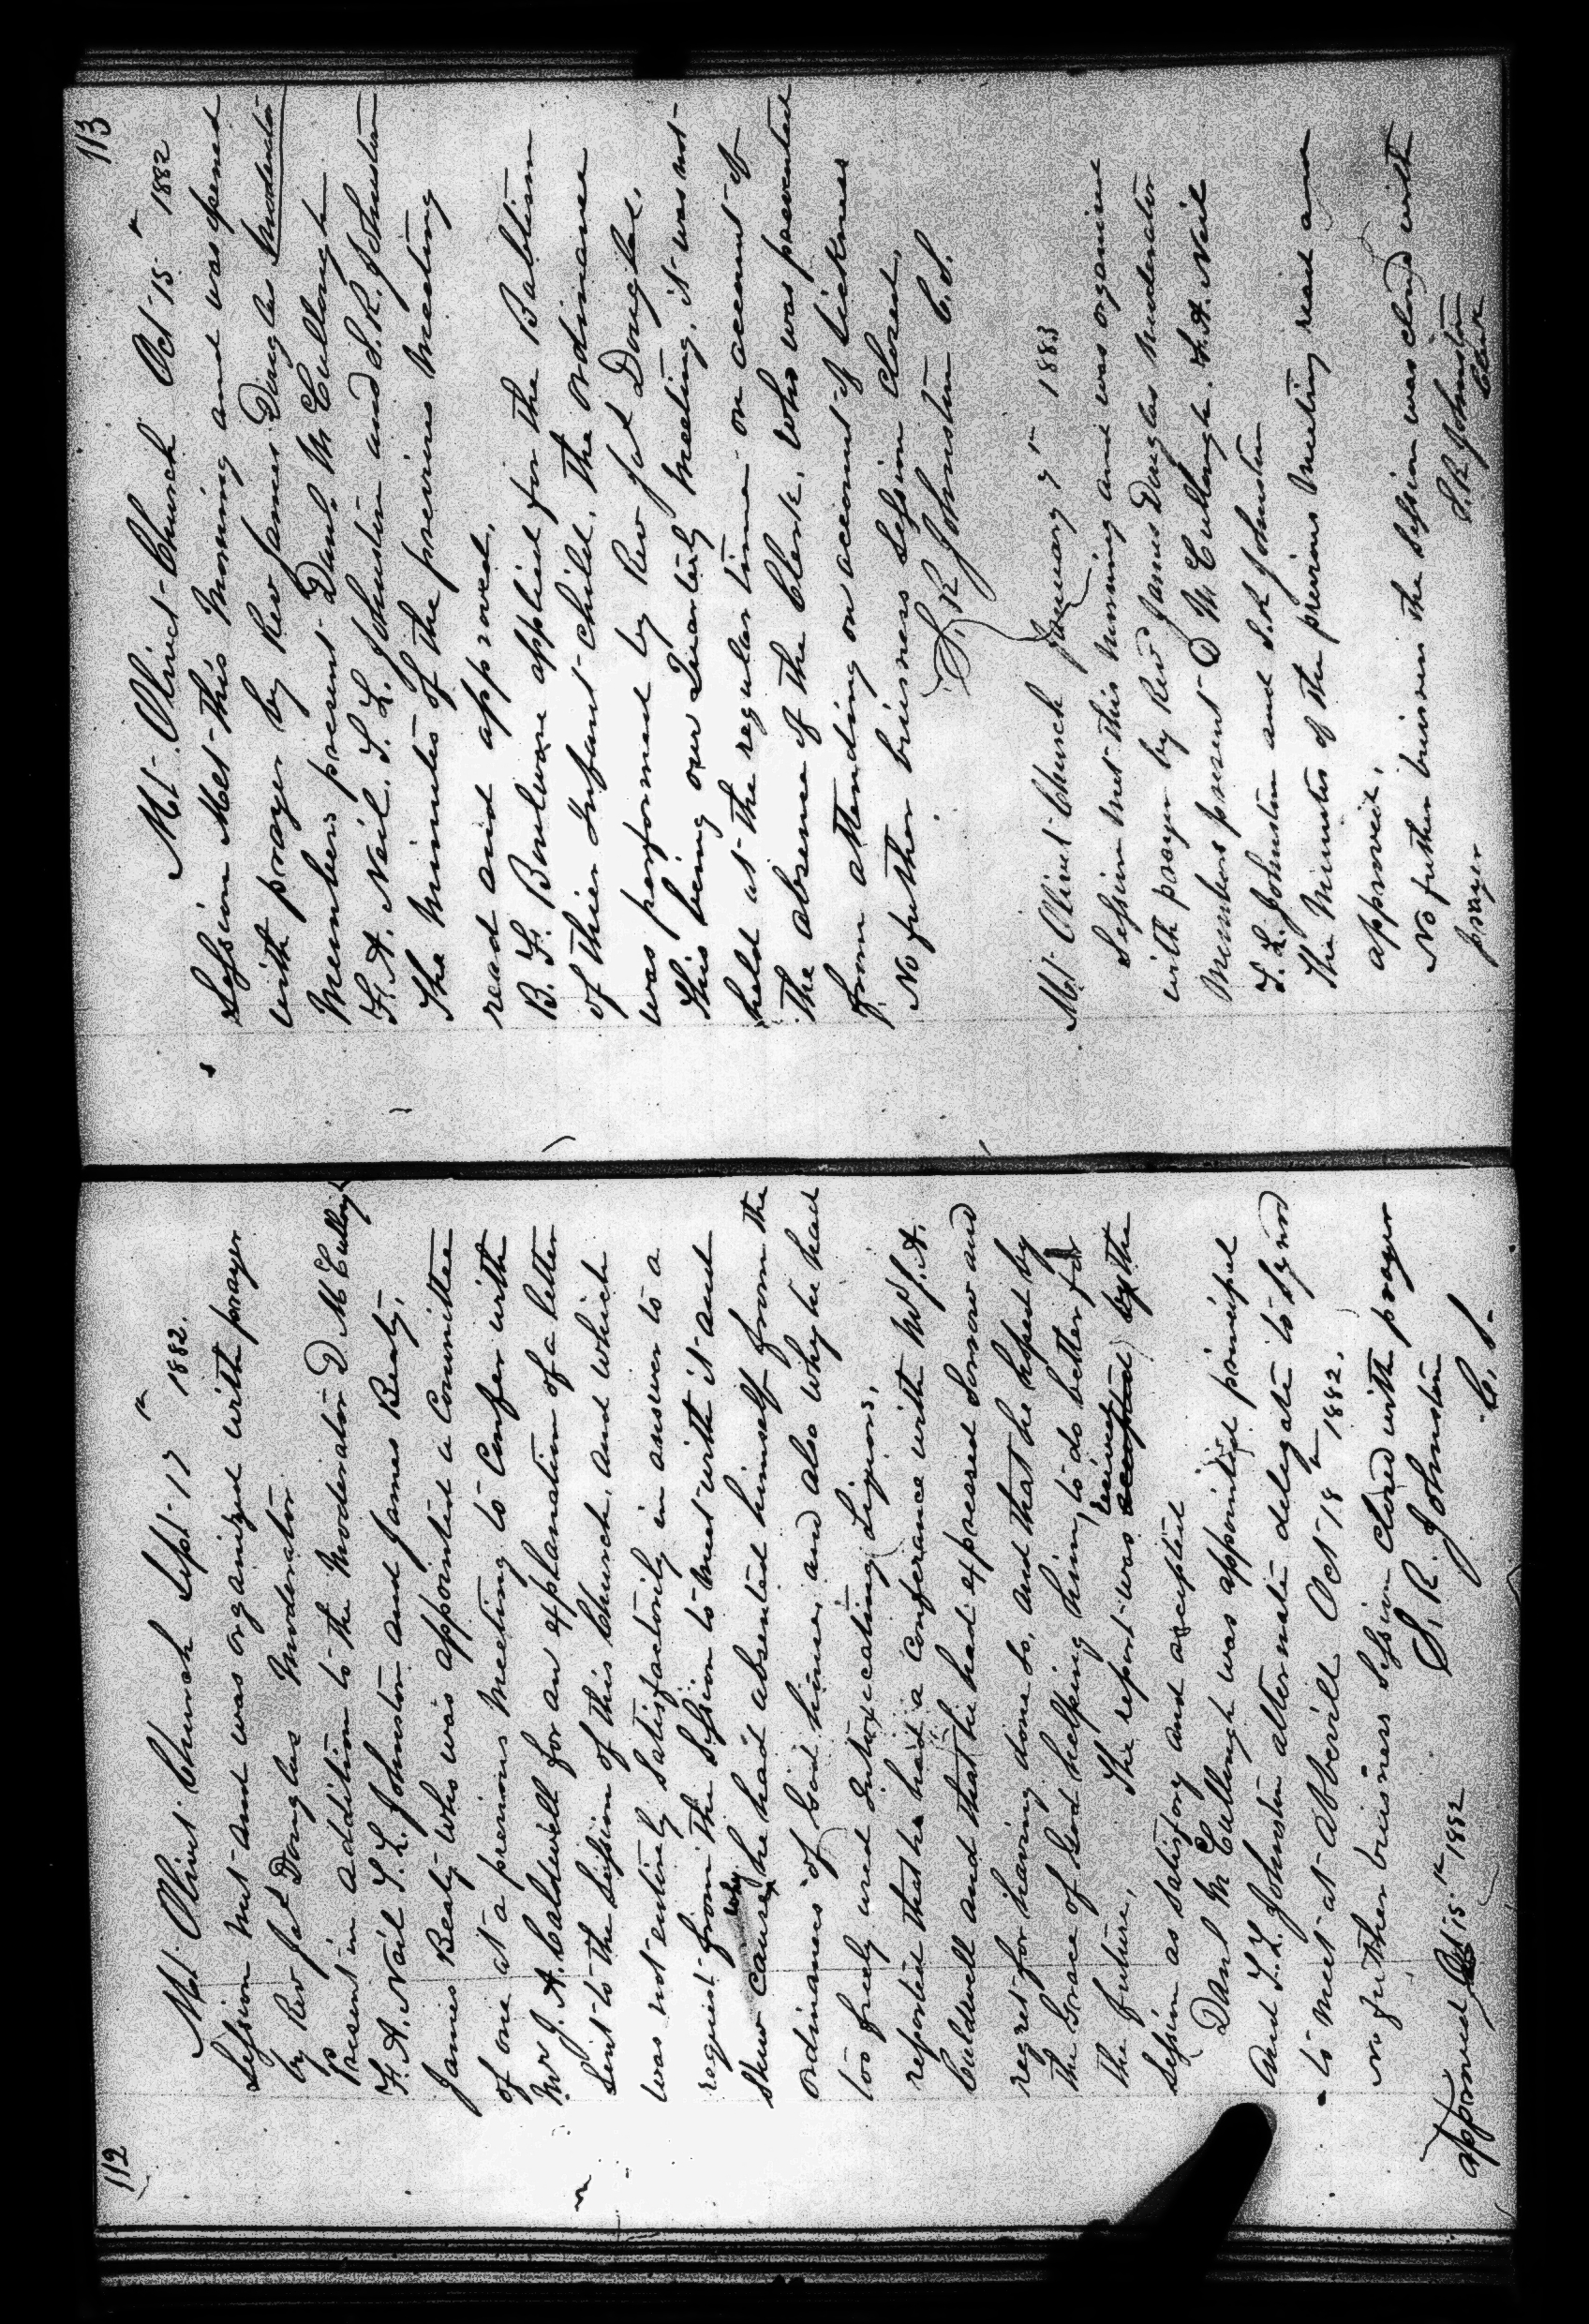 112
Mt. Olivet Church Sept. 17th 1882.
Session met and was organized with prayer
by Rev Jas Douglas Moderator
Present in addition to the Moderator D McCullough
F. A. Nail T. L. Johnston and James Beaty,
James Beaty who was appointed a Committee
of one at a previous meeting to Confer with
Mr J. A. Caldwell for an explanation of a letter
Sent to the Session of this Church, and which
was not entirely satisfactorily in answer to a
request from the Session to meet with it and
Shew cause why he had absented himself from the
ordinances of God's house, and also why he had
too freely used intoxicating Liquors.
reported that he had a conferance with Mr J. A.
Caldwell and that he had expressed Sorrow and
regret for having done so, and that he hoped by
the Grace of God helping him, to do better for
the future. The report was accepted recived by the
Session as satisfory and accepted
Danl McCullough was appointed principal
and T. L. Johnston alternate delegate to Synod
to meet at Abbeville Oct 18th 1882.
No further business Session closed with prayer
S. R. Johnston
C. S.
Approved Oct 15th 1882
113
Mt. Olivet Church Oct 15th 1882
Session Met this Morning and was opened
with prayer by Rev James Douglas Moderator
Members present Danl McCullough
F. A. Nail. T. L. Johnston and S. R. Johnston
The Minutes of the previous Meeting
read and approved.
B. F. Boulware applied for the Babtism
of thier Infant child. The ordinance
was performed by Rev Jas Douglas.
This being our Quarterly Meeting, it was not
held at the regular time on account of
the absence of the Clerk. who was prevented
from attending on account of sickness
No further business Session closed.
S. R. Johnston C. S.
Mt Olivet Church January 7th 1883
Session met this morning and was organized
with prayer by Rev James Douglas Moderator
Members present D McCullough. F. A. Nail
T. L. Johnston and S. R. Johnston
The Minutes of the previous Meeting read and
approved.
No further business the Session was closed with
prayer S. R. Johnston
Clerk